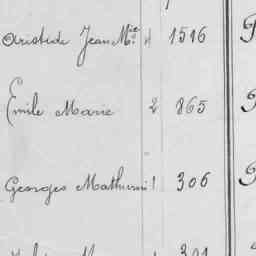 Aristide Jean Mie 4 1516 P
Emile Marie 2 865
Georges Mathurin 1 306